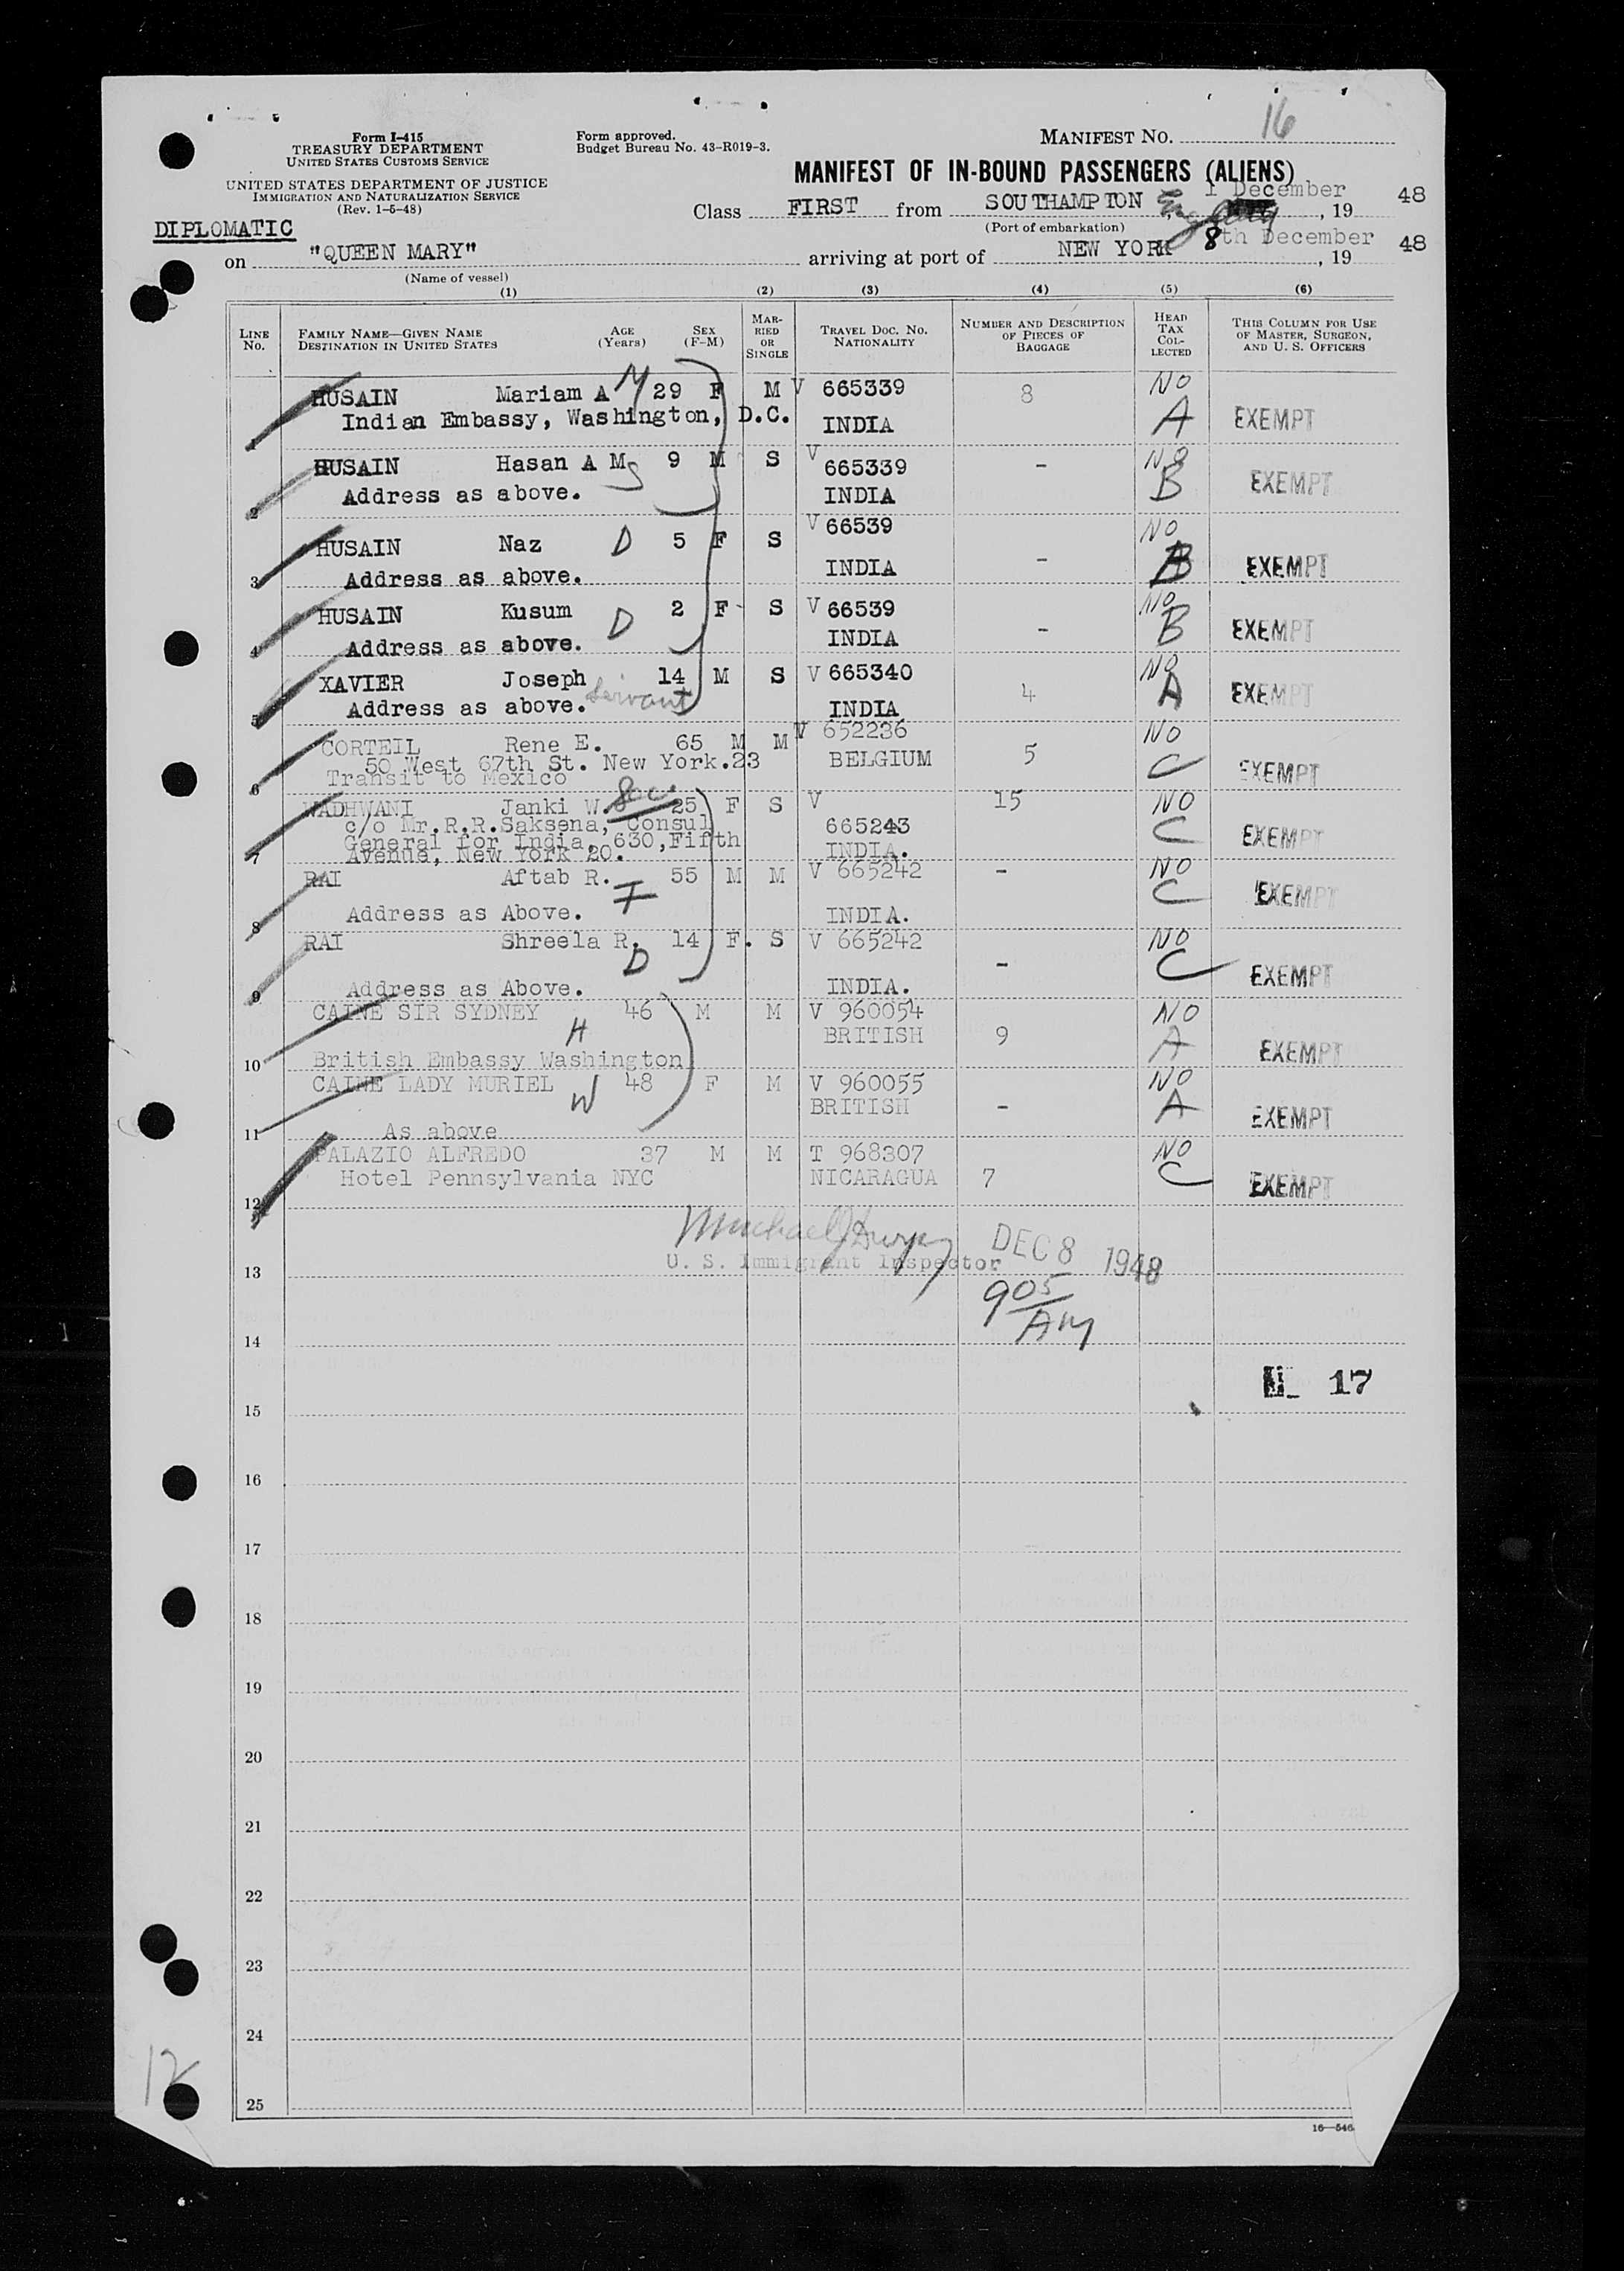 16
Form I-415
TREASURY DEPARTMENT
UNITED STATES CUSTOMS SERVICE
Form approved.
Budget Bureau No. 43-R019-3.
MANIFEST No.
UNITED STATES DEPARTMENT OF JUSTICE
IMMIGRATION AND NATURALIZATION SERVICE
(Rev. 1-5-48)
MANIFEST OF IN-BOUND PASSENGERS (ALIENS)
DIPLOMATIC
Class FIRST from SOUTHAMPTON England 1 December, 19 48
(Port of embarkation)
on "QUEEN MARY" arriving at port of NEW YORK 8th December, 19 48
(Name of vessel)
(1) (2) (3) (4) (5) (6)
LINE No. FAMILY NAME—GIVEN NAME DESTINATION IN UNITED STATES AGE (Years) SEX (F-M) MARRIED OR SINGLE TRAVEL DOC. NO. NATIONALITY NUMBER AND DESCRIPTION OF PIECES OF BAGGAGE HEAD TAX COLLECTED THIS COLUMN FOR USE OF MASTER, SURGEON, AND U. S. OFFICERS
HUSAIN Mariam A M 29 F M V 665339 8 NO
1 Indian Embassy, Washington, D.C. INDIA A EXEMPT
HUSAIN Hasan A M S 9 M S V 665339 - NO
2 Address as above. INDIA B EXEMPT
HUSAIN Naz D 5 F S V 66539 NO
3 Address as above. INDIA - B EXEMPT
HUSAIN Kusum D 2 F S V 66539 NO
4 Address as above. INDIA - B EXEMPT
XAVIER Joseph 14 M S V 665340 NO
5 Address as above. Servant INDIA 4 A EXEMPT
CORTEIL Rene E. 65 M M V 652236 NO
50 West 67th St. New York.23 BELGIUM 5 C
6 Transit to Mexico EXEMPT
WADHWANI Janki W. 25 F S V 15 NO
c/o Mr.R.R.Saksena, Consul 665243 C
General for India, 630,Fifth EXEMPT
7 Avenue, New York 20. INDIA.
RAI Aftab R. F 55 M M V 665242 - NO
8 Address as Above. INDIA. C EXEMPT
RAI Shreela R. D 14 F. S V 665242 NO
9 Address as Above. INDIA. - C EXEMPT
CAINE SIR SYDNEY H 46 M M V 960054 NO
BRITISH 9 A
10 British Embassy Washington EXEMPT
CAINE LADY MURIEL W 48 F M V 960055 NO
BRITISH - A
11 As above EXEMPT
PALAZIO ALFREDO 37 M M T 968307 NO
12 Hotel Pennsylvania NYC NICARAGUA 7 C EXEMPT
DEC 8 1948
13 U. S. Immigrant Inspector
905 AM
14
17
15
16
17
18
19
20
21
22
23
24
12
25